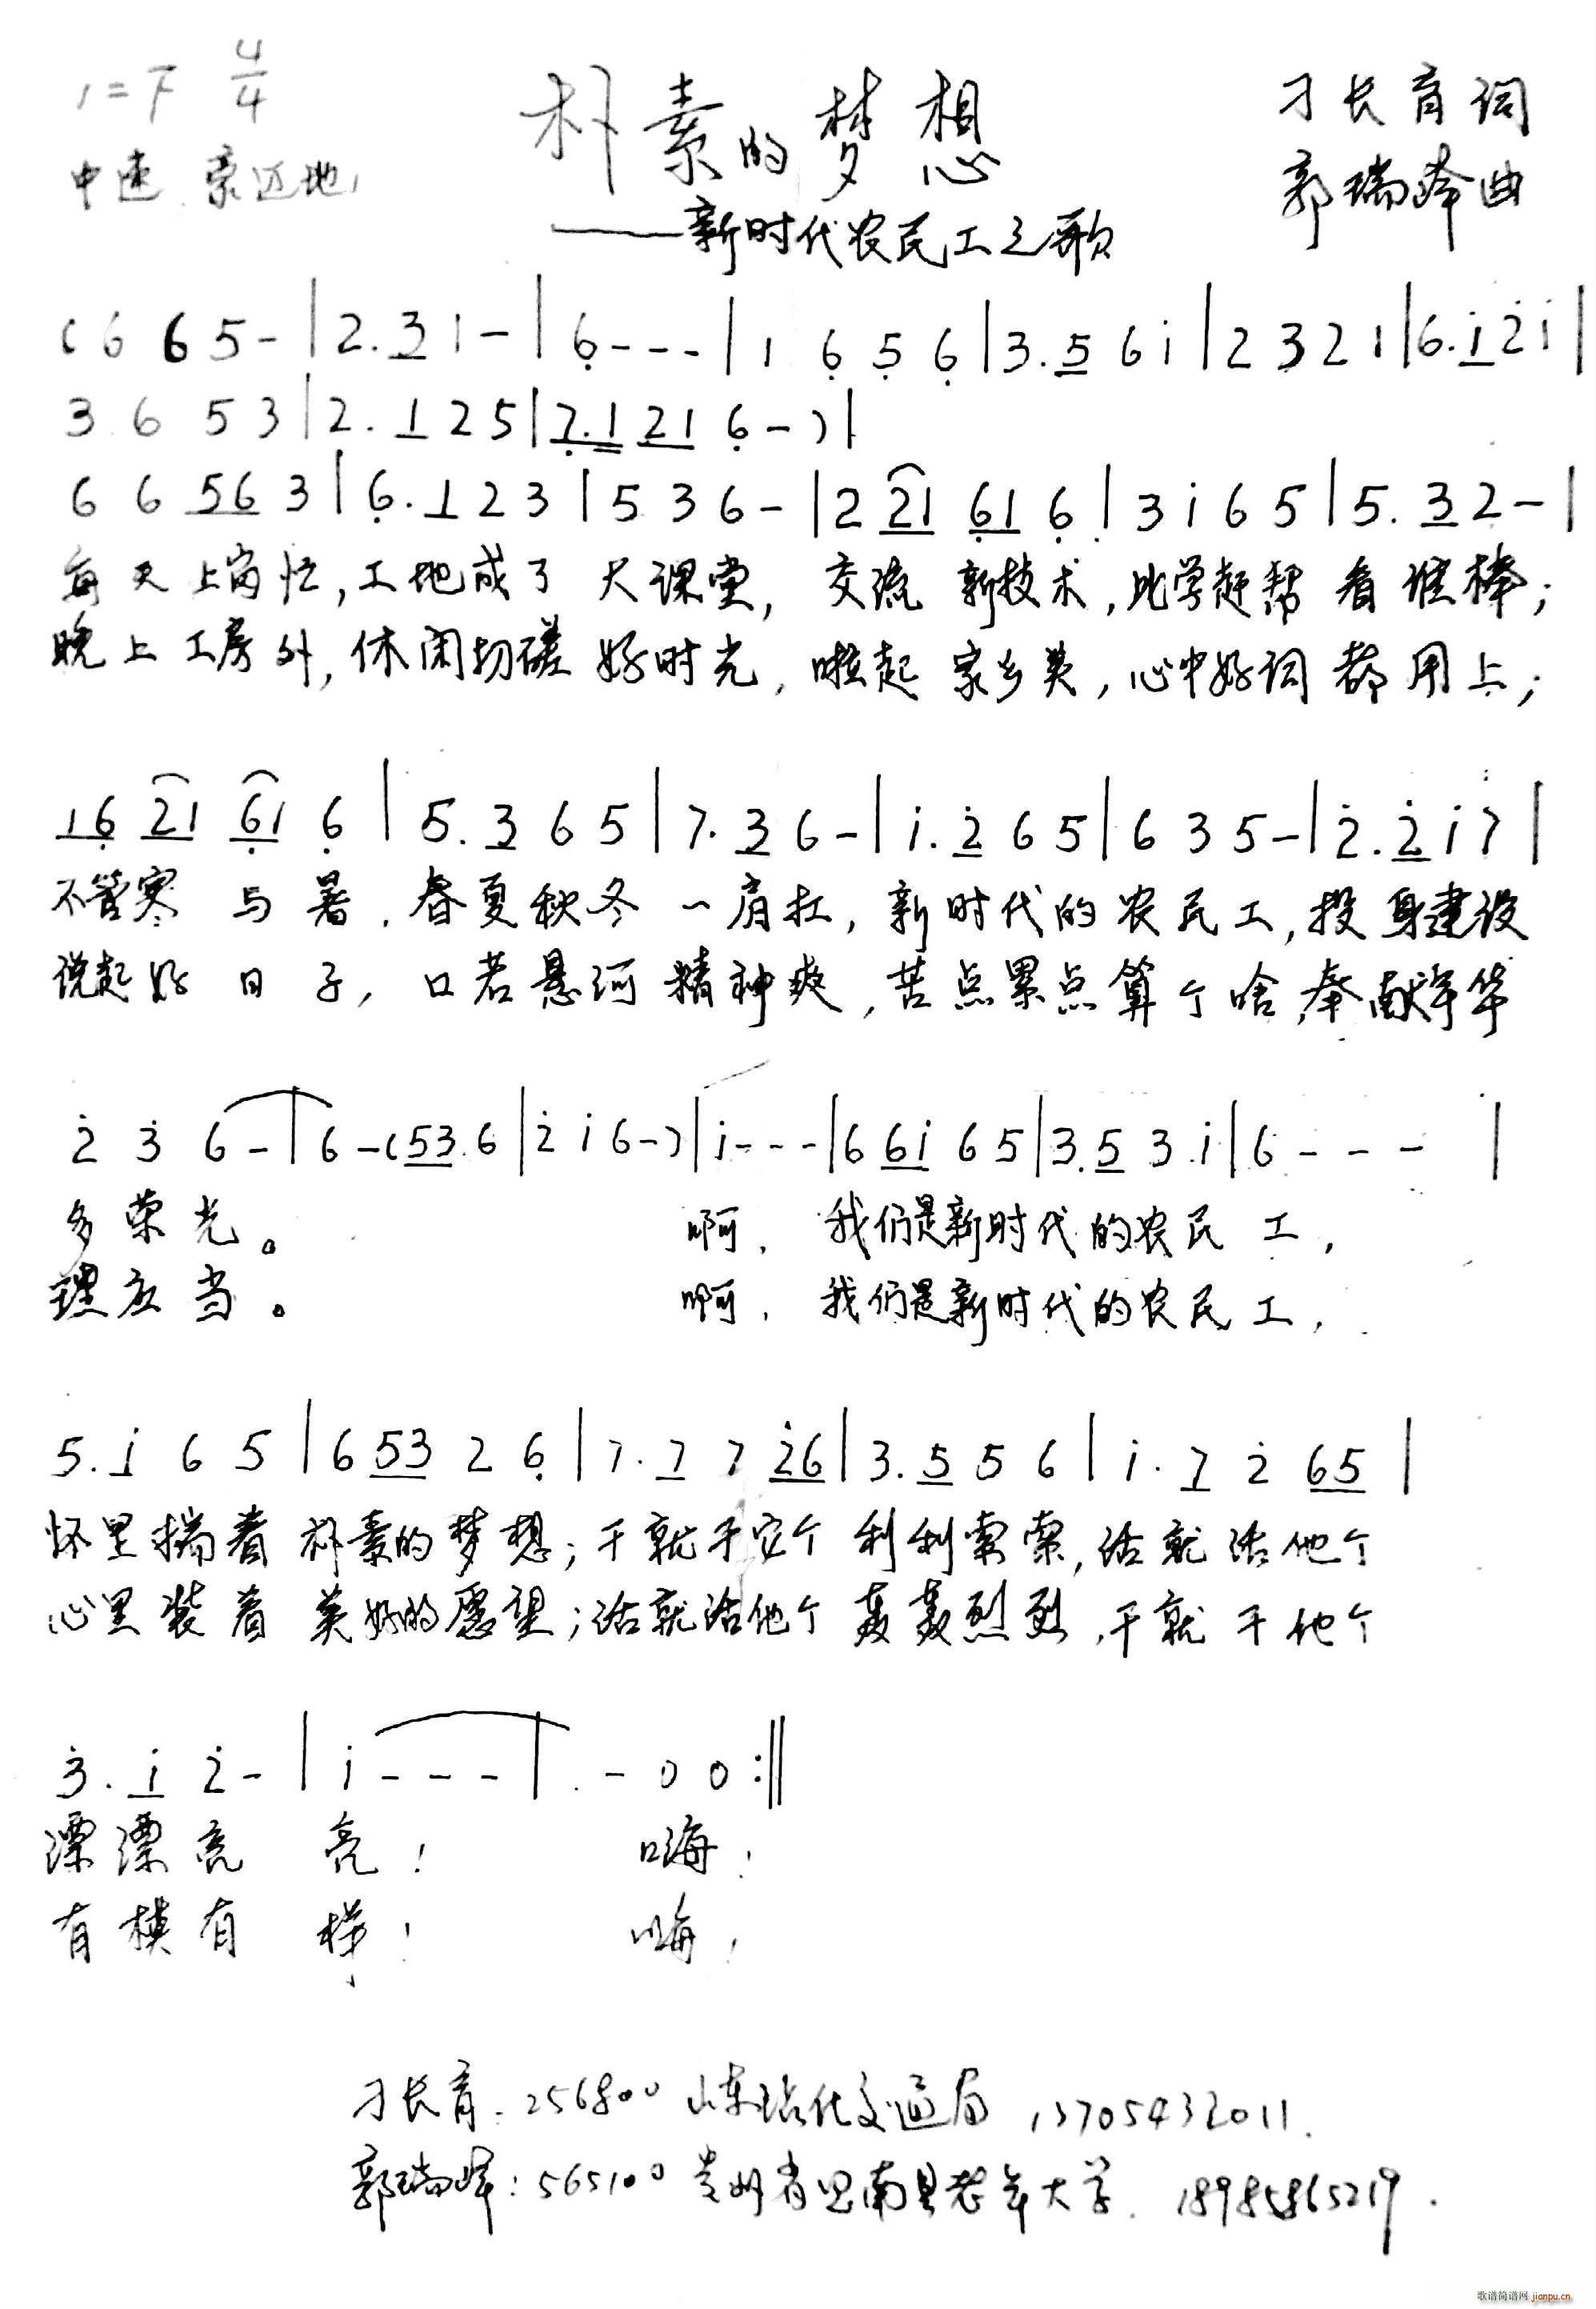 1=F 4/4
朴素的梦想
刁长育词
中速 豪迈地
郭瑞峰曲
——新时代农民工之歌
(6 6 5 - | 2. 3 1 - | 6 - - - | 1 6 5 6 | 3. 5 6 i | 2 3 2 1 | 6. i 2 i |
3 6 5 3 | 2. 1 2 5 | 7. 1 2 1 6 - ) |
6 6 5 6 3 | 6. 1 2 3 | 5 3 6 - | 2 2 1 6 1 6 | 3 i 6 5 | 5. 3 2 - |
每天上岗忙,工地成了 大课堂, 交流 新技术,比学赶帮 看谁棒;
晚上工房外,休闲切磋 好时光, 啦起 家乡美,心中好词 都用上;
1 6 2 1 6 1 6 | 5. 3 6 5 | 7. 3 6 - | i. 2 6 5 | 6 3 5 - | 2. 2 i 7 |
不管寒 与 暑,春夏秋冬 一肩扛,新时代的农民工,投身建设
说起好 日 子,口若悬河 精神爽,苦点累点算个啥,奉献年华
2 3 6 - | 6 - (5 3 6 | 2 i 6 - ) | i - - - | 6 6 i 6 5 | 3. 5 3 i | 6 - - - |
多荣光。 啊, 我们是新时代的农民 工,
理应当。 啊, 我们是新时代的农民 工,
5. i 6 5 | 6 5 3 2 6 | 7. 7 7 2 6 | 3. 5 5 6 | i. 7 2 6 5 |
怀里揣着 朴素的梦想;干就干它个 利利索索,活就活他个
心里装着 美好的愿望;活就活他个 轰轰烈烈,干就干他个
3. i 2 - | i - - - | - 0 0 :||
漂漂亮 亮! 嗨!
有模有 样! 嗨!
刁长育:256800 山东沾化交通局 13705432011.
郭瑞峰:565100 贵州省思南县老年大学. 18985865219.
歌谱简谱网 jianpu.cn